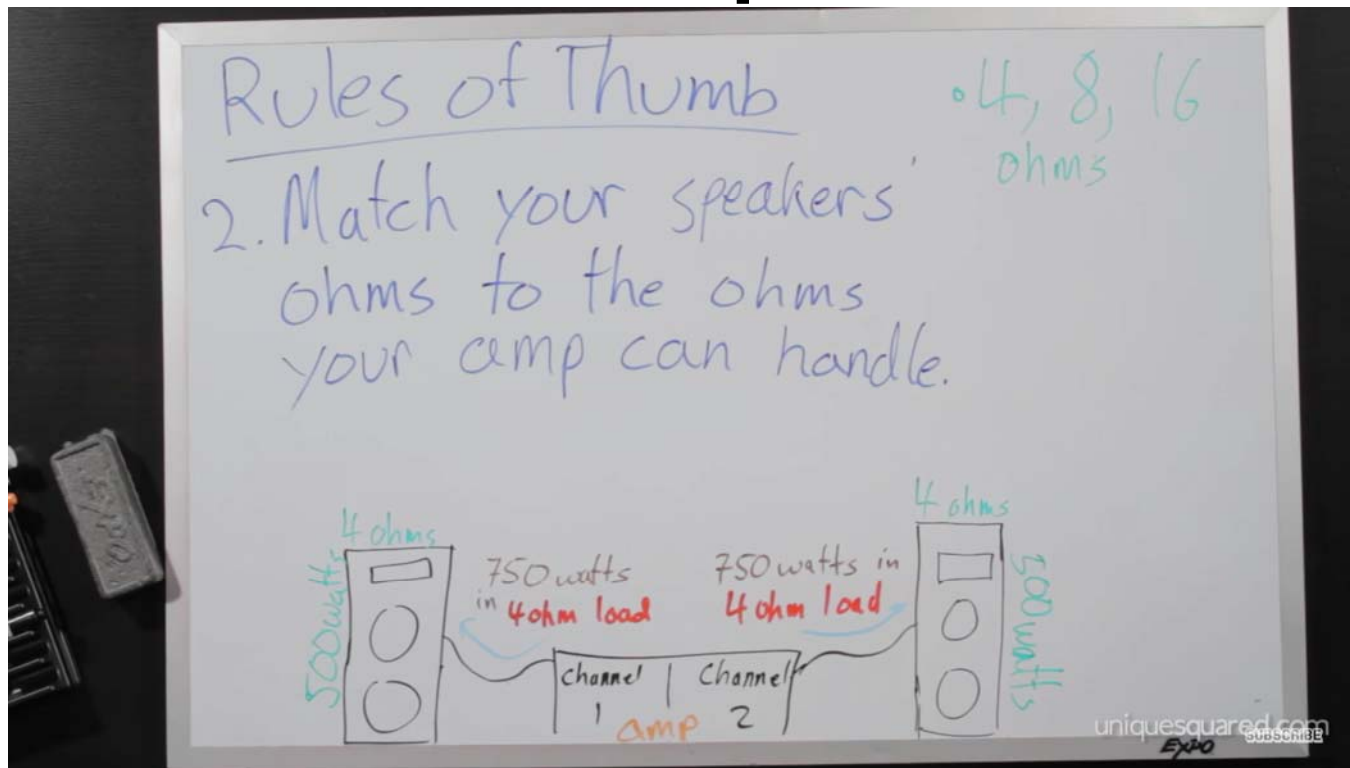 Rules of Thumb
• 4, 8, 16
ohms
2. Match your speakers'
ohms to the ohms
your amp can handle.
4 ohms
500watts
750watts
in 4ohm load
750watts in
4ohm load
4 ohms
500watts
Channel
1
Channel
2
amp
uniquesquared.com
SUBSCRIBE
EXPO
EXPO